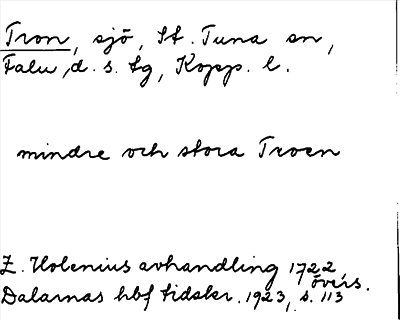 Tron, sjö, St. Tuna sn,
Falu d. s. tg, Kopp. l.
mindre och stora Troen
Z. Holenius avhandling 1722,
övers.
Dalarnas hbf tidskr. 1923, s. 113